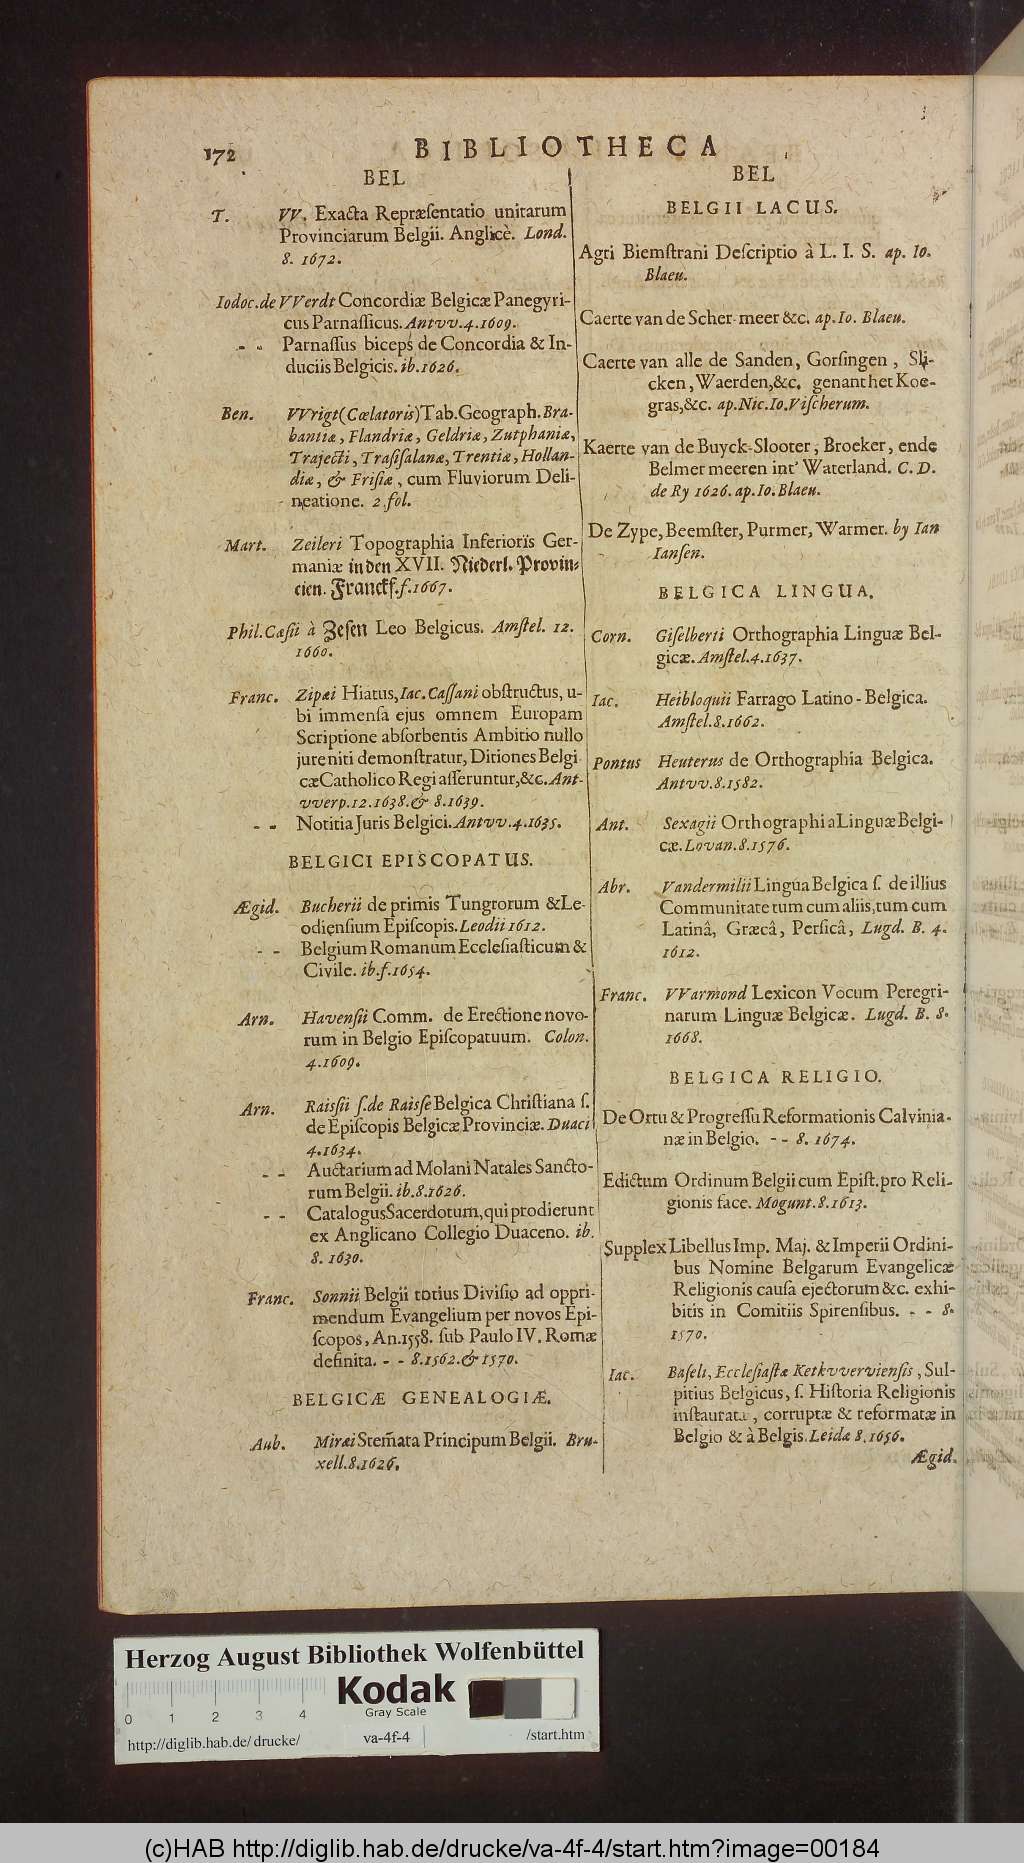 172
BIBLIOTHECA
BEL
T. VV. Exacta Repræſentatio unitarum
Provinciarum Belgii. Anglicè. Lond.
8. 1672.
Iodoc. de VVerdt Concordiæ Belgicæ Panegyri-
cus Parnaſſicus. Antvv. 4. 1609.
- - Parnaſſus biceps de Concordia & In-
duciis Belgicis. ib. 1626.
Ben. VVrigt (Cœlatoris) Tab. Geograph. Bra-
bantiæ, Flandriæ, Geldriæ, Zutphaniæ,
Trajecti, Traſiſalanæ, Trentiæ, Hollan-
diæ, & Friſiæ, cum Fluviorum Deli-
neatione. 2 fol.
Mart. Zeileri Topographia Inferioris Ger-
maniæ in den XVII. Niederl. Provin-
cien. Franckf. f. 1667.
Phil. Cæſii à Zeſen Leo Belgicus. Amſtel. 12.
1660.
Franc. Zipæi Hiatus, Iac. Caſſani obſtructus, u-
bi immenſa ejus omnem Europam
Scriptione abſorbentis Ambitio nullo
jure niti demonſtratur, Ditiones Belgi
cæ Catholico Regi aſſeruntur, &c. Ant-
vverp. 12. 1638. & 8. 1639.
- - Notitia Juris Belgici. Antvv. 4. 1635.
BELGICI EPISCOPATUS.
Ægid. Bucherii de primis Tungrorum & Le-
odienſium Epiſcopis. Leodii 1612.
- - Belgium Romanum Eccleſiaſticum &
Civile. ib. f. 1654.
Arn. Havenſii Comm. de Erectione novo-
rum in Belgio Epiſcopatuum. Colon.
4. 1609.
Arn. Raiſſii ſ. de Raiſſe Belgica Chriſtiana ſ.
de Epiſcopis Belgicæ Provinciæ. Duaci
4. 1634.
- - Auctarium ad Molani Natales Sancto-
rum Belgii. ib. 8. 1626.
- - Catalogus Sacerdotum, qui prodierunt
ex Anglicano Collegio Duaceno. ib.
8. 1630.
Franc. Sonnii Belgii totius Diviſio ad oppri-
mendum Evangelium per novos Epi-
ſcopos, An. 1558. ſub Paulo IV. Romæ
definita. - - 8. 1562. & 1570.
BELGICÆ GENEALOGIÆ.
Aub. Miræi Stem̃ata Principum Belgii. Bru-
xell. 8. 1626.
BEL
BELGII LACUS.
Agri Biemſtrani Deſcriptio à L. I. S. ap. Io.
Blaeu.
Caerte van de Scher-meer &c. ap. Io. Blaeu.
Caerte van alle de Sanden, Gorſingen, Sli-
cken, Waerden, &c. genant het Koe-
gras, &c. ap. Nic. Io. Viſcherum.
Kaerte van de Buyck-Slooter, Broeker, ende
Belmer meeren int' Waterland. C. D.
de Ry 1626. ap. Io. Blaeu.
De Zype, Beemſter, Purmer, Warmer. by Ian
Ianſen.
BELGICA LINGUA.
Corn. Giſelberti Orthographia Linguæ Bel-
gicæ. Amſtel. 4. 1637.
Iac. Heibloquii Farrago Latino-Belgica.
Amſtel. 8. 1662.
Pontus Heuterus de Orthographia Belgica.
Antvv. 8. 1582.
Ant. Sexagii Orthographia Linguæ Belgi-
cæ. Lovan. 8. 1576.
Abr. Vandermilii Lingua Belgica ſ. de illius
Communitate tum cum aliis, tum cum
Latinâ, Græcâ, Perſicâ, Lugd. B. 4.
1612.
Franc. VVarmond Lexicon Vocum Peregri-
narum Linguæ Belgicæ. Lugd. B. 8.
1668.
BELGICA RELIGIO.
De Ortu & Progreſſu Reformationis Calvinia-
næ in Belgio. - - 8. 1674.
Edictum Ordinum Belgii cum Epiſt. pro Reli-
gionis face. Mogunt. 8. 1613.
Supplex Libellus Imp. Maj. & Imperii Ordini-
bus Nomine Belgarum Evangelicæ
Religionis cauſa ejectorum &c. exhi-
bitis in Comitiis Spirenſibus. - - 8.
1570.
Iac. Baſelt, Eccleſiaſtæ Ketkvvervienſis, Sul-
pitius Belgicus, ſ. Hiſtoria Religionis
inſtauratæ, corruptæ & reformatæ in
Belgio & à Belgis. Leidæ 8. 1656.
Ægid.
Herzog August Bibliothek Wolfenbüttel
Kodak
Gray Scale
0 1 2 3 4
http://diglib.hab.de/drucke/ va-4f-4 /start.htm
(c)HAB http://diglib.hab.de/drucke/va-4f-4/start.htm?image=00184